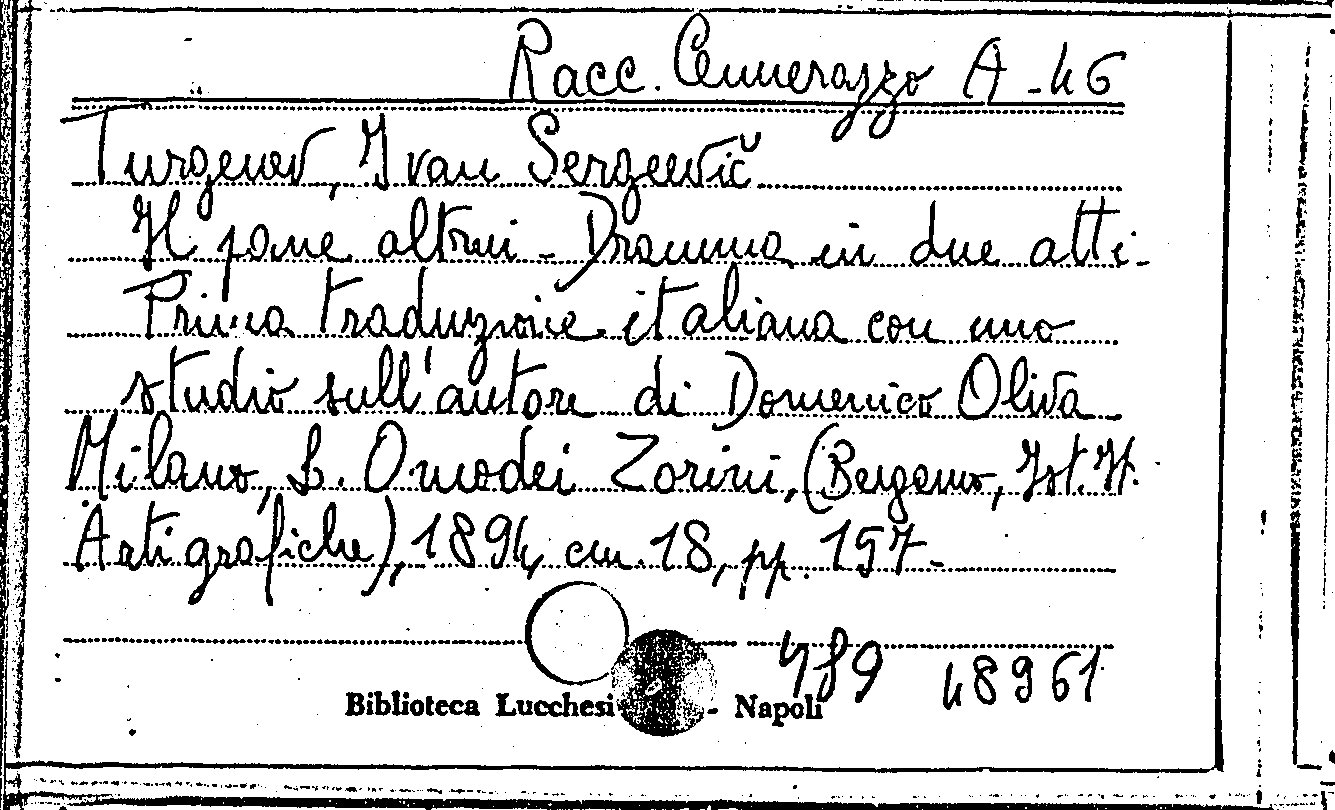 Racc. Cennerazzo A-46
Turgenev, Ivan Sergeevič
Il pane altrui - Dramma in due atti -
Prima traduzione italiana con uno
studio sull'autore di Domenico Oliva
Milano, L. Omodei Zorini, (Bergamo, Ist. It.
Arti grafiche), 1894, cm. 18, pp. 157 -
48961
Biblioteca Lucchesi - Napoli